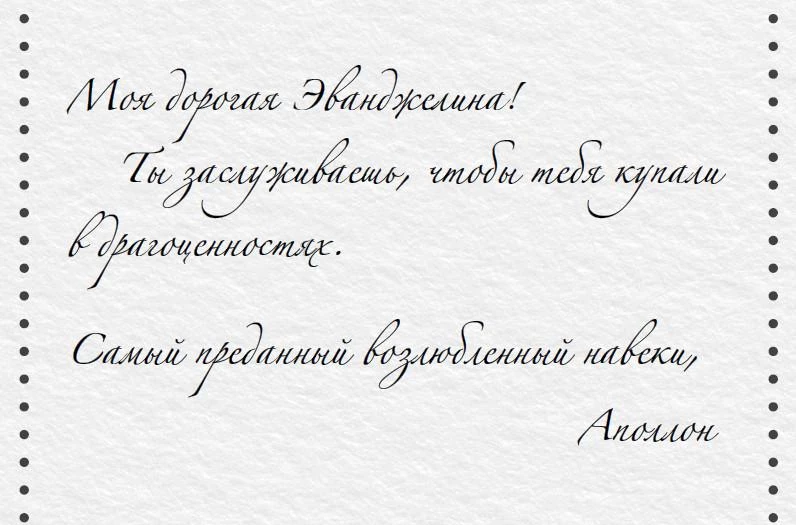 Моя дорогая Эванджелина!
Ты заслуживаешь, чтобы тебя купали
в драгоценностях.
Самый преданный возлюбленный навеки,
Аполлон